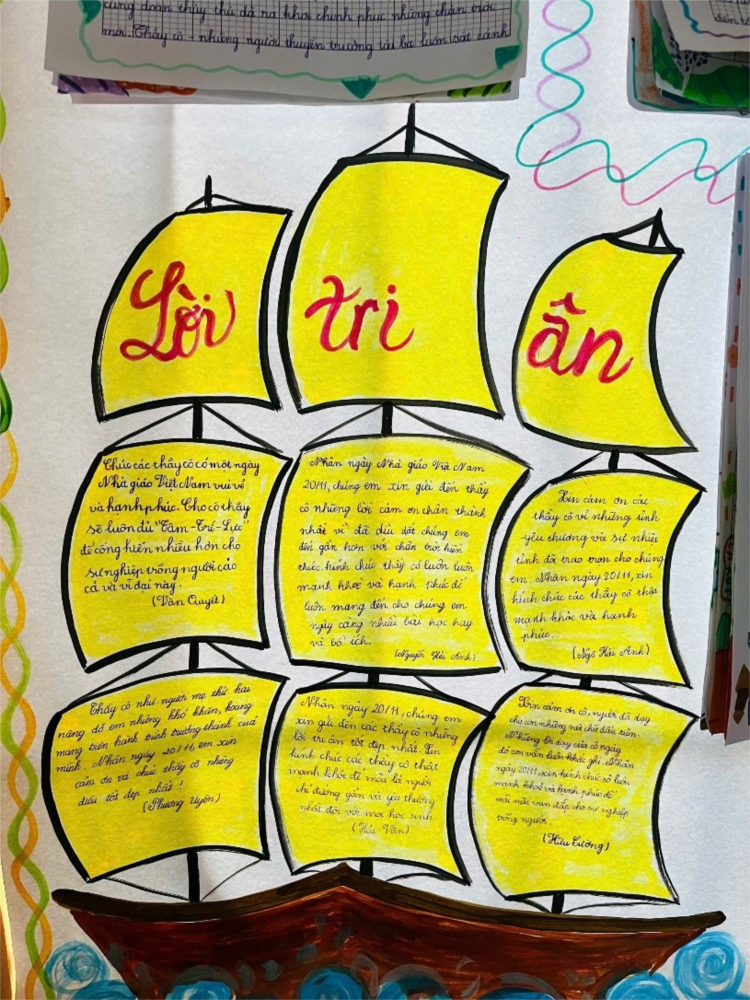 cùng đoàn thủy thủ đã ra khơi chinh phục những chân trời
mới. Thầy cô - những người thuyền trưởng tài ba luôn sát cánh
Lời tri ân
Chúc các thầy cô có một ngày
Nhà giáo Việt Nam vui vẻ
và hạnh phúc. Cho cô thầy
sẽ luôn đủ "Tâm-Trí-Lực"
để cống hiến nhiều hơn cho
sự nghiệp trồng người cao
cả và vĩ đại này.
(Văn Quyết)
Nhân ngày Nhà giáo Việt Nam
20/11, chúng em xin gửi đến thầy
cô những lời cảm ơn chân thành
nhất vì đã dìu dắt chúng em
đến gần hơn với chân trời kiến
thức. Kính chúc thầy cô luôn luôn
mạnh khoẻ và hạnh phúc để
luôn mang đến cho chúng em
ngày càng nhiều bài học hay
và bổ ích.
(Nguyễn Hải Anh)
Xin cảm ơn các
thầy cô vì những tình
yêu thương và sự nhiệt
tình đã trao trọn cho chúng
em. Nhân ngày 20/11, xin
kính chúc các thầy cô thật
mạnh khỏe và hạnh
phúc.
(Ngô Hải Anh)
Thầy cô như người mẹ thứ hai
nâng đỡ em những khó khăn, hoang
mang trên hành trình trưởng thành của
mình. Nhân ngày 20/11, em xin
cảm ơn và chúc thầy cô những
điều tốt đẹp nhất!
(Phương Uyên)
Nhân ngày 20/11, chúng em
xin gửi đến các thầy cô những
lời tri ân tốt đẹp nhất. Xin
kính chúc các thầy cô thật
mạnh khỏe để mãi là người
chỉ đường gần và yêu thương
nhất đối với mọi học sinh
(Hữu Văn)
Xin cảm ơn cô, người đã dạy
cho con những nét chữ đầu tiên.
Những lời dạy của cô ngày
đó con vẫn luôn khắc ghi. Nhân
ngày 20/11, xin kính chúc cô luôn
mạnh khoẻ và hạnh phúc để
mãi mãi vun đắp cho sự nghiệp
trồng người.
(Hữu Cường)